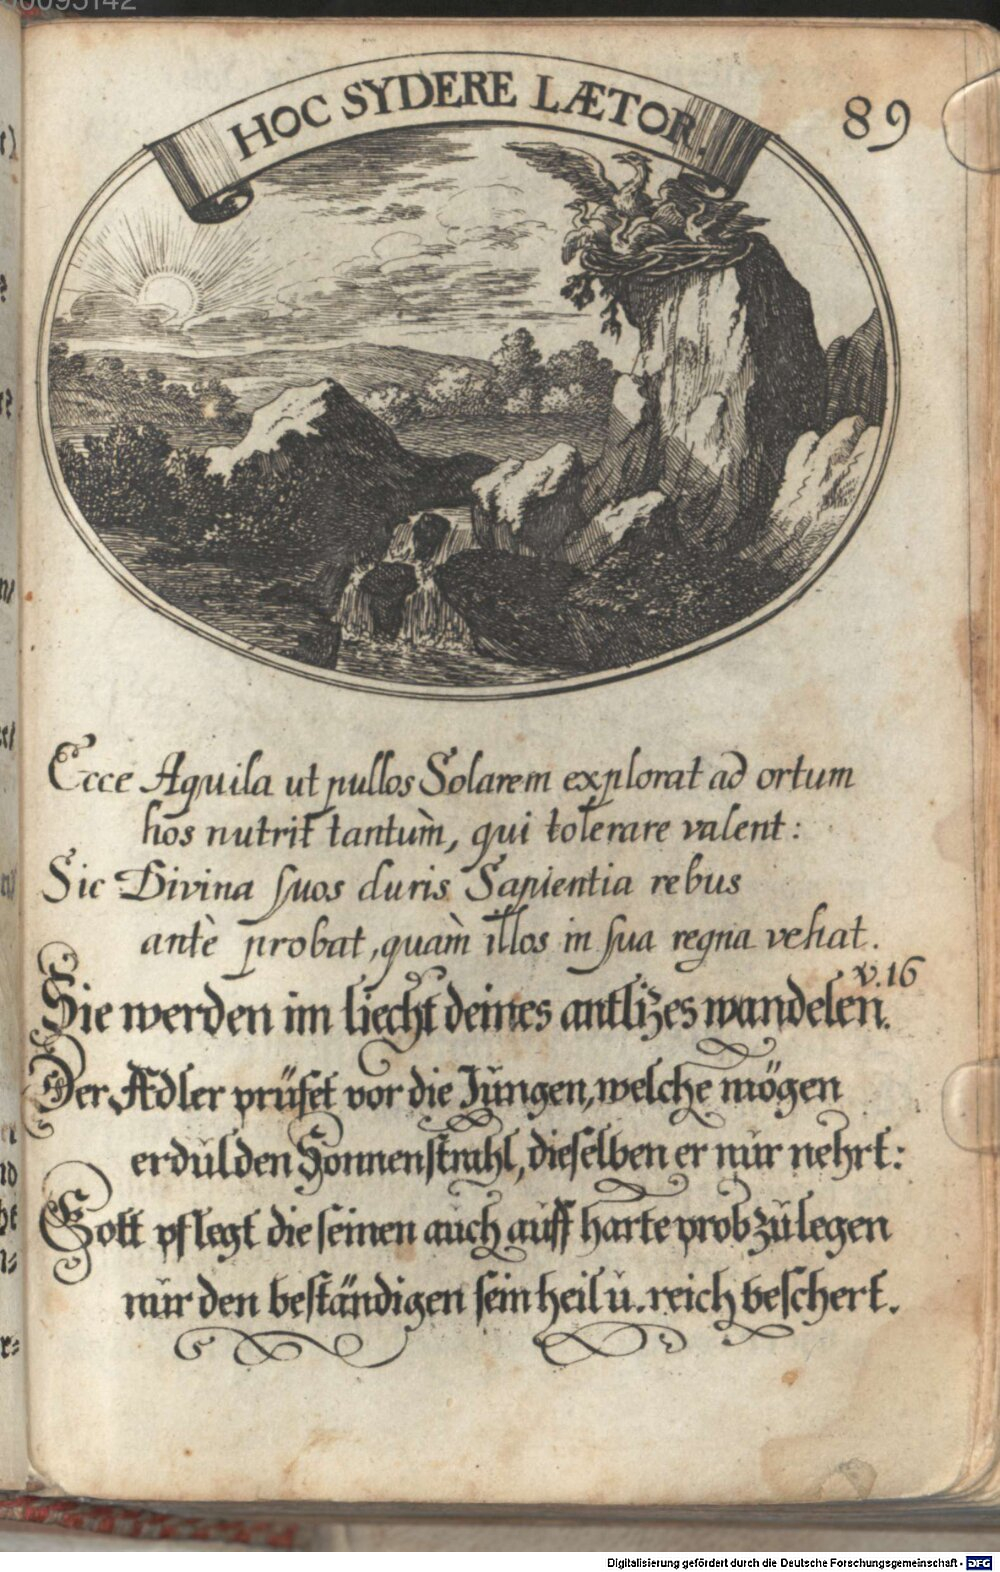 HOC SYDERE LÆTOR.
89
Ecce Aquila ut pullos Solarem explorat ad ortum
hos nutrit tantùm, qui tolerare valent:
Sic Divina suos duris Sapientia rebus
antè probat, quàm illos in sua regna vehat.
v. 16
Sie werden im liecht deines antlizes wandelen.
Der Adler prüfet vor die Jŭngen, welche mögen
erdŭlden Sonnenstrahl, dieselben er nŭr nehrt:
Gott pflegt die seinen aŭch aŭff harte prob zŭlegen
nŭr den beständigen sein heil ŭ. reich beschert.
Digitalisierung gefördert durch die Deutsche Forschungsgemeinschaft - DFG